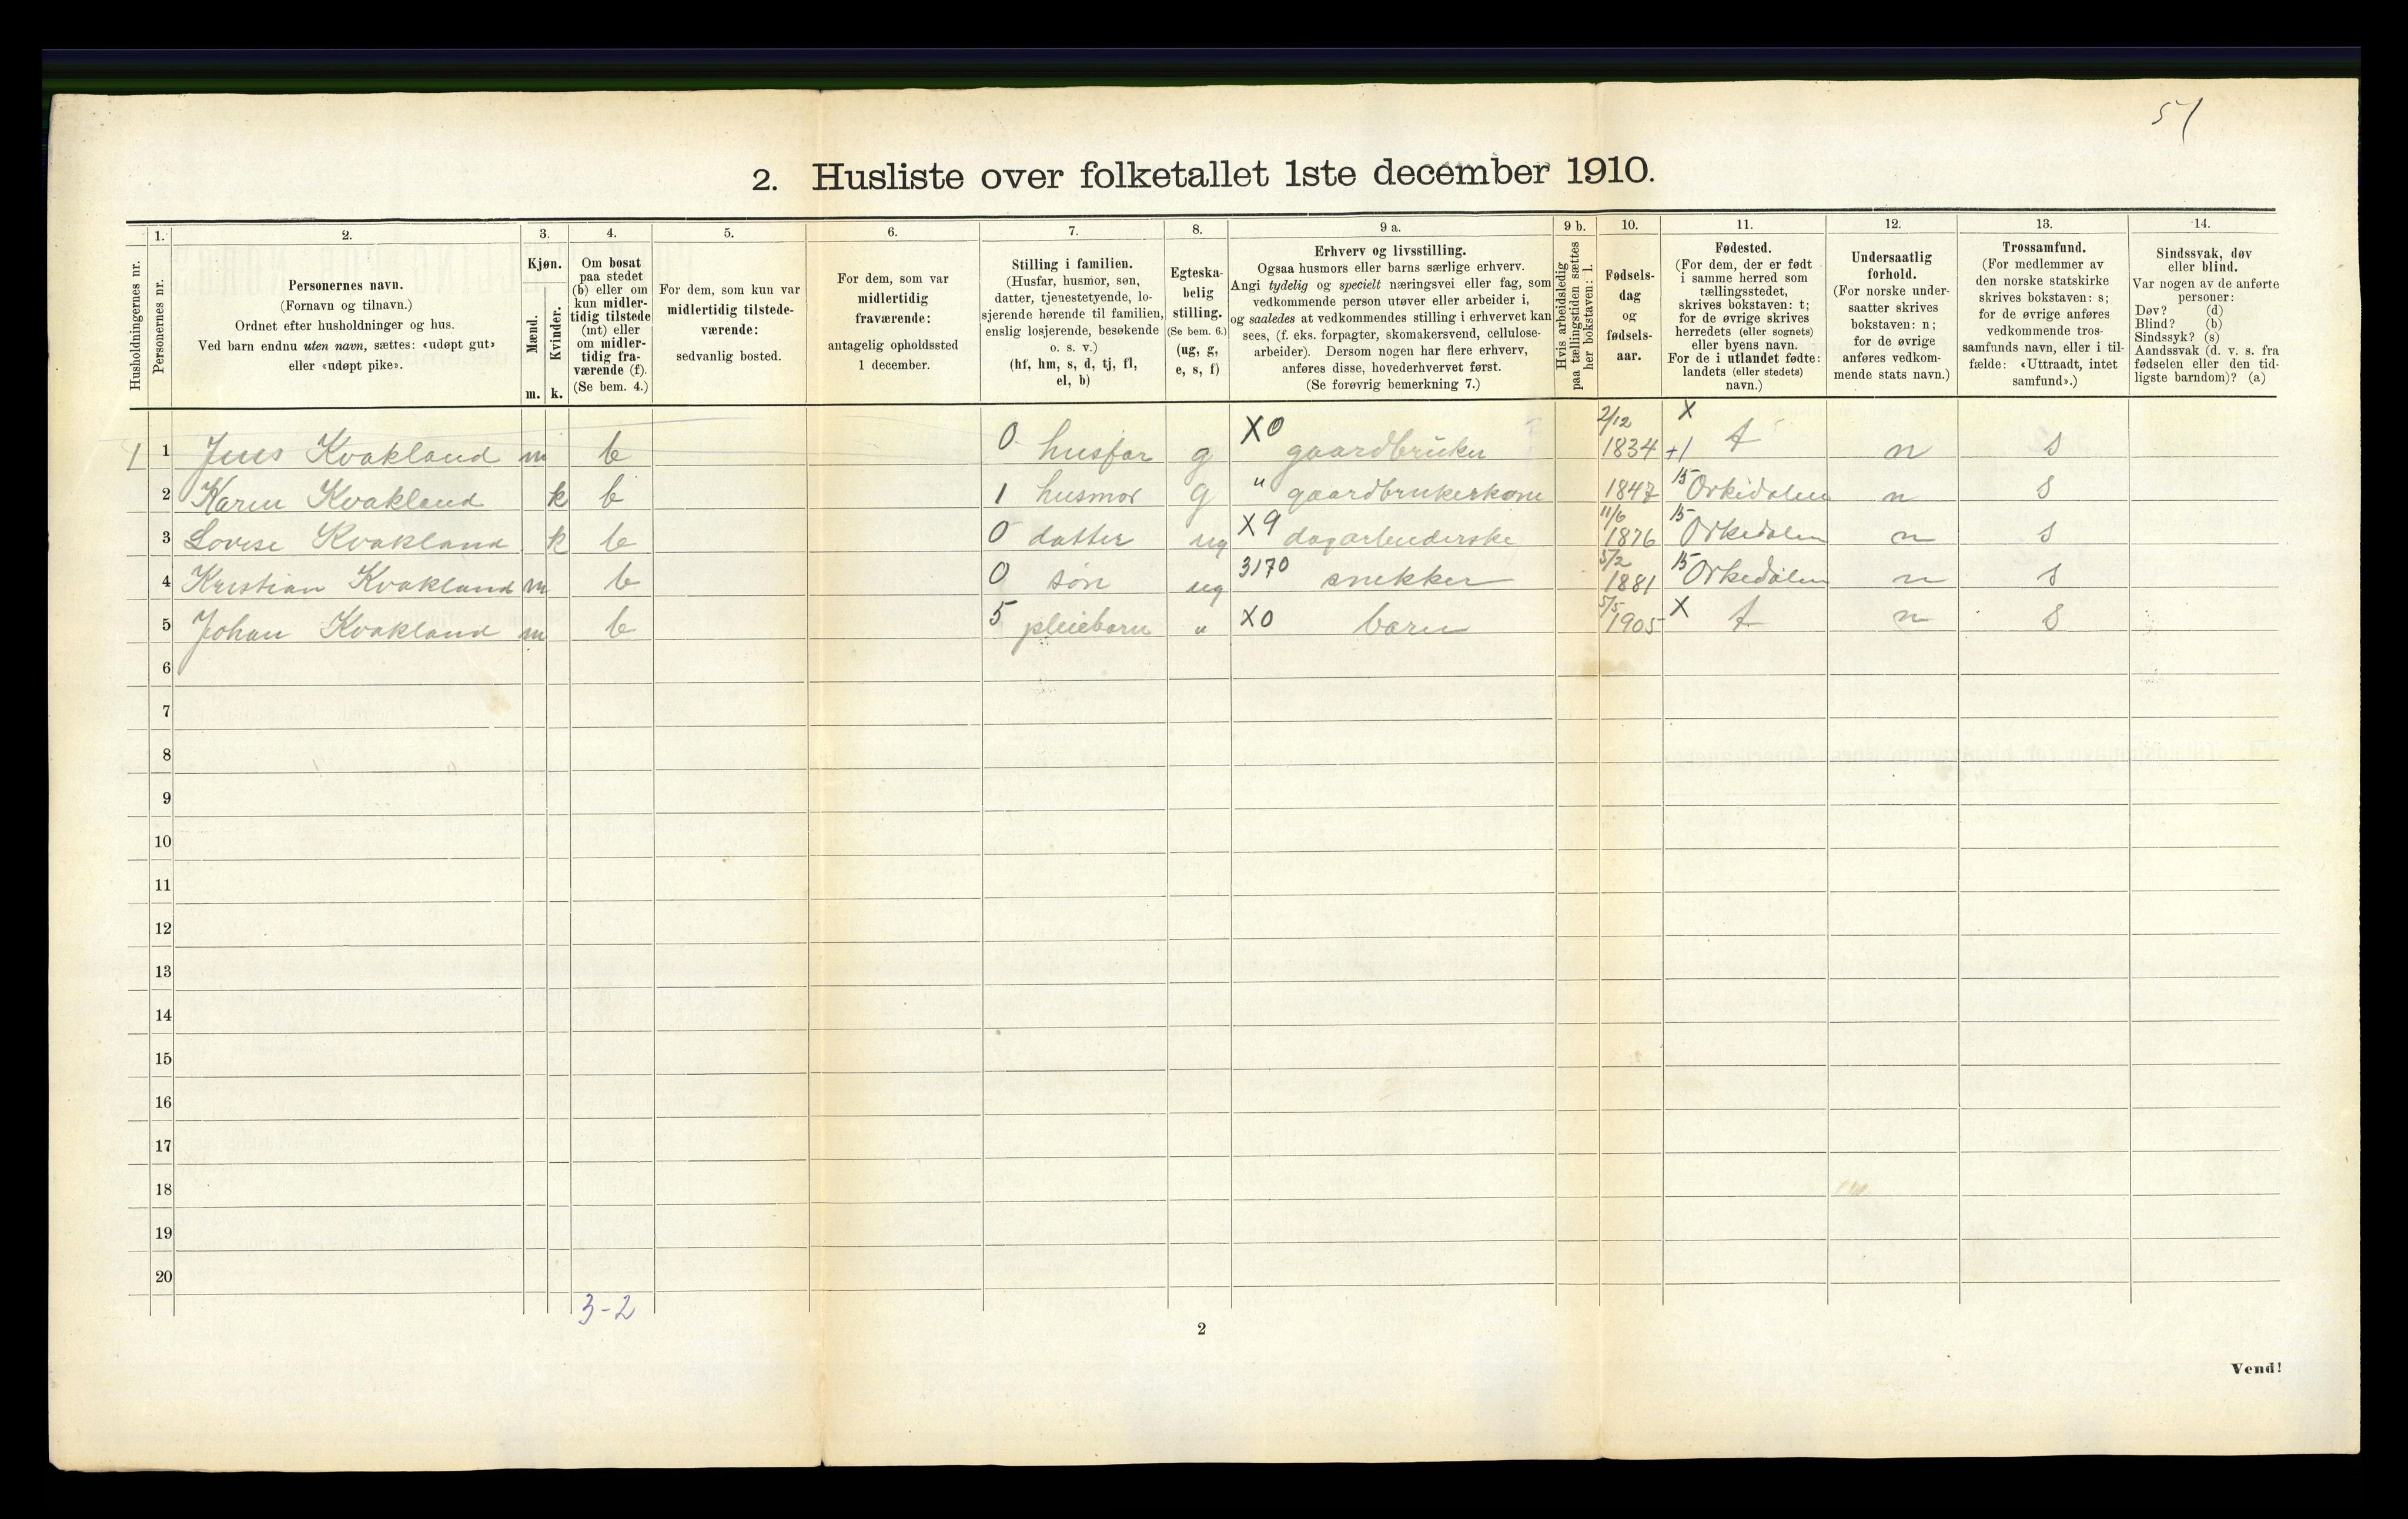 51
2. Husliste over folketallet 1ste december 1910.
Husholdningernes nr.
1.
Personernes nr.
2.
Personernes navn.
(Fornavn og tilnavn.)
Ordnet efter husholdninger og hus.
Ved barn endnu uten navn, sættes: «udøpt gut»
eller «udøpt pike».
3.
Kjøn.
Mænd.
Kvinder.
m. k.
4.
Om bosat
paa stedet
(b) eller om
kun midler-
tidig tilstede
(mt) eller
om midler-
tidig fra-
værende (f).
(Se bem. 4.)
5.
For dem, som kun var
midlertidig tilstede-
værende:
sedvanlig bosted.
6.
For dem, som var
midlertidig
fraværende:
antagelig opholdssted
1 december.
7.
Stilling i familien.
(Husfar, husmor, søn,
datter, tjenestetyende, lo-
sjerende hørende til familien,
enslig losjerende, besøkende
o. s. v.)
(hf, hm, s, d, tj, fl,
el, b)
8.
Egteska-
belig
stilling.
(Se bem. 6.)
(ug, g,
e, s, f)
9 a.
Erhverv og livsstilling.
Ogsaa husmors eller barns særlige erhverv.
Angi tydelig og specielt næringsvei eller fag, som
vedkommende person utøver eller arbeider i,
og saaledes at vedkommendes stilling i erhvervet kan
sees, (f. eks. forpagter, skomakersvend, cellulose-
arbeider). Dersom nogen har flere erhverv,
anføres disse, hovederhvervet først.
(Se forøvrig bemerkning 7.)
9 b.
Hvis arbeidsledig
paa tællingstiden sættes
her bokstaven: l.
10.
Fødsels-
dag
og
fødsels-
aar.
11.
Fødested.
(For dem, der er født
i samme herred som
tællingsstedet,
skrives bokstaven: t;
for de øvrige skrives
herredets (eller sognets)
eller byens navn.
For de i utlandet fødte:
landets (eller stedets)
navn.)
12.
Undersaatlig
forhold.
(For norske under-
saatter skrives
bokstaven: n;
for de øvrige
anføres vedkom-
mende stats navn.)
13.
Trossamfund.
(For medlemmer av
den norske statskirke
skrives bokstaven: s;
for de øvrige anføres
vedkommende tros-
samfunds navn, eller i til-
fælde: «Uttraadt, intet
samfund».)
14.
Sindssvak, døv
eller blind.
Var nogen av de anførte
personer:
Døv? (d)
Blind? (b)
Sindssyk? (s)
Aandssvak (d. v. s. fra
fødselen eller den tid-
ligste barndom)? (a)
1 1 Jens Kvakland m b 0 husfar g X0 gaardbruker 2/12 1834 +1 X t n s
2 Karen Kvakland k b 1 husmor g " gaardbrukerkone 1847 15 Orkedalen n s
3 Lovise Kvakland k b 0 datter ug X9 dagarbeiderske 11/6 1876 15 Orkedalen n s
4 Kristian Kvakland m b 0 søn ug 3170 snekker 5/2 1881 15 Orkedalen n s
5 Johan Kvakland m b 5 pleiebarn " X0 barn 5/5 1905 X t n s
6
7
8
9
10
11
12
13
14
15
16
17
18
19
20
3-2
2
Vend!